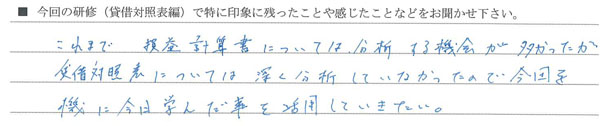 ■ 今回の研修（貸借対照表編）で特に印象に残ったことや感じたことなどをお聞かせ下さい。
これまで 損益計算書については、分析する機会が多かったが
貸借対照表については深く分析していなかったので今回を
機に今日学んだ事を活用していきたい。